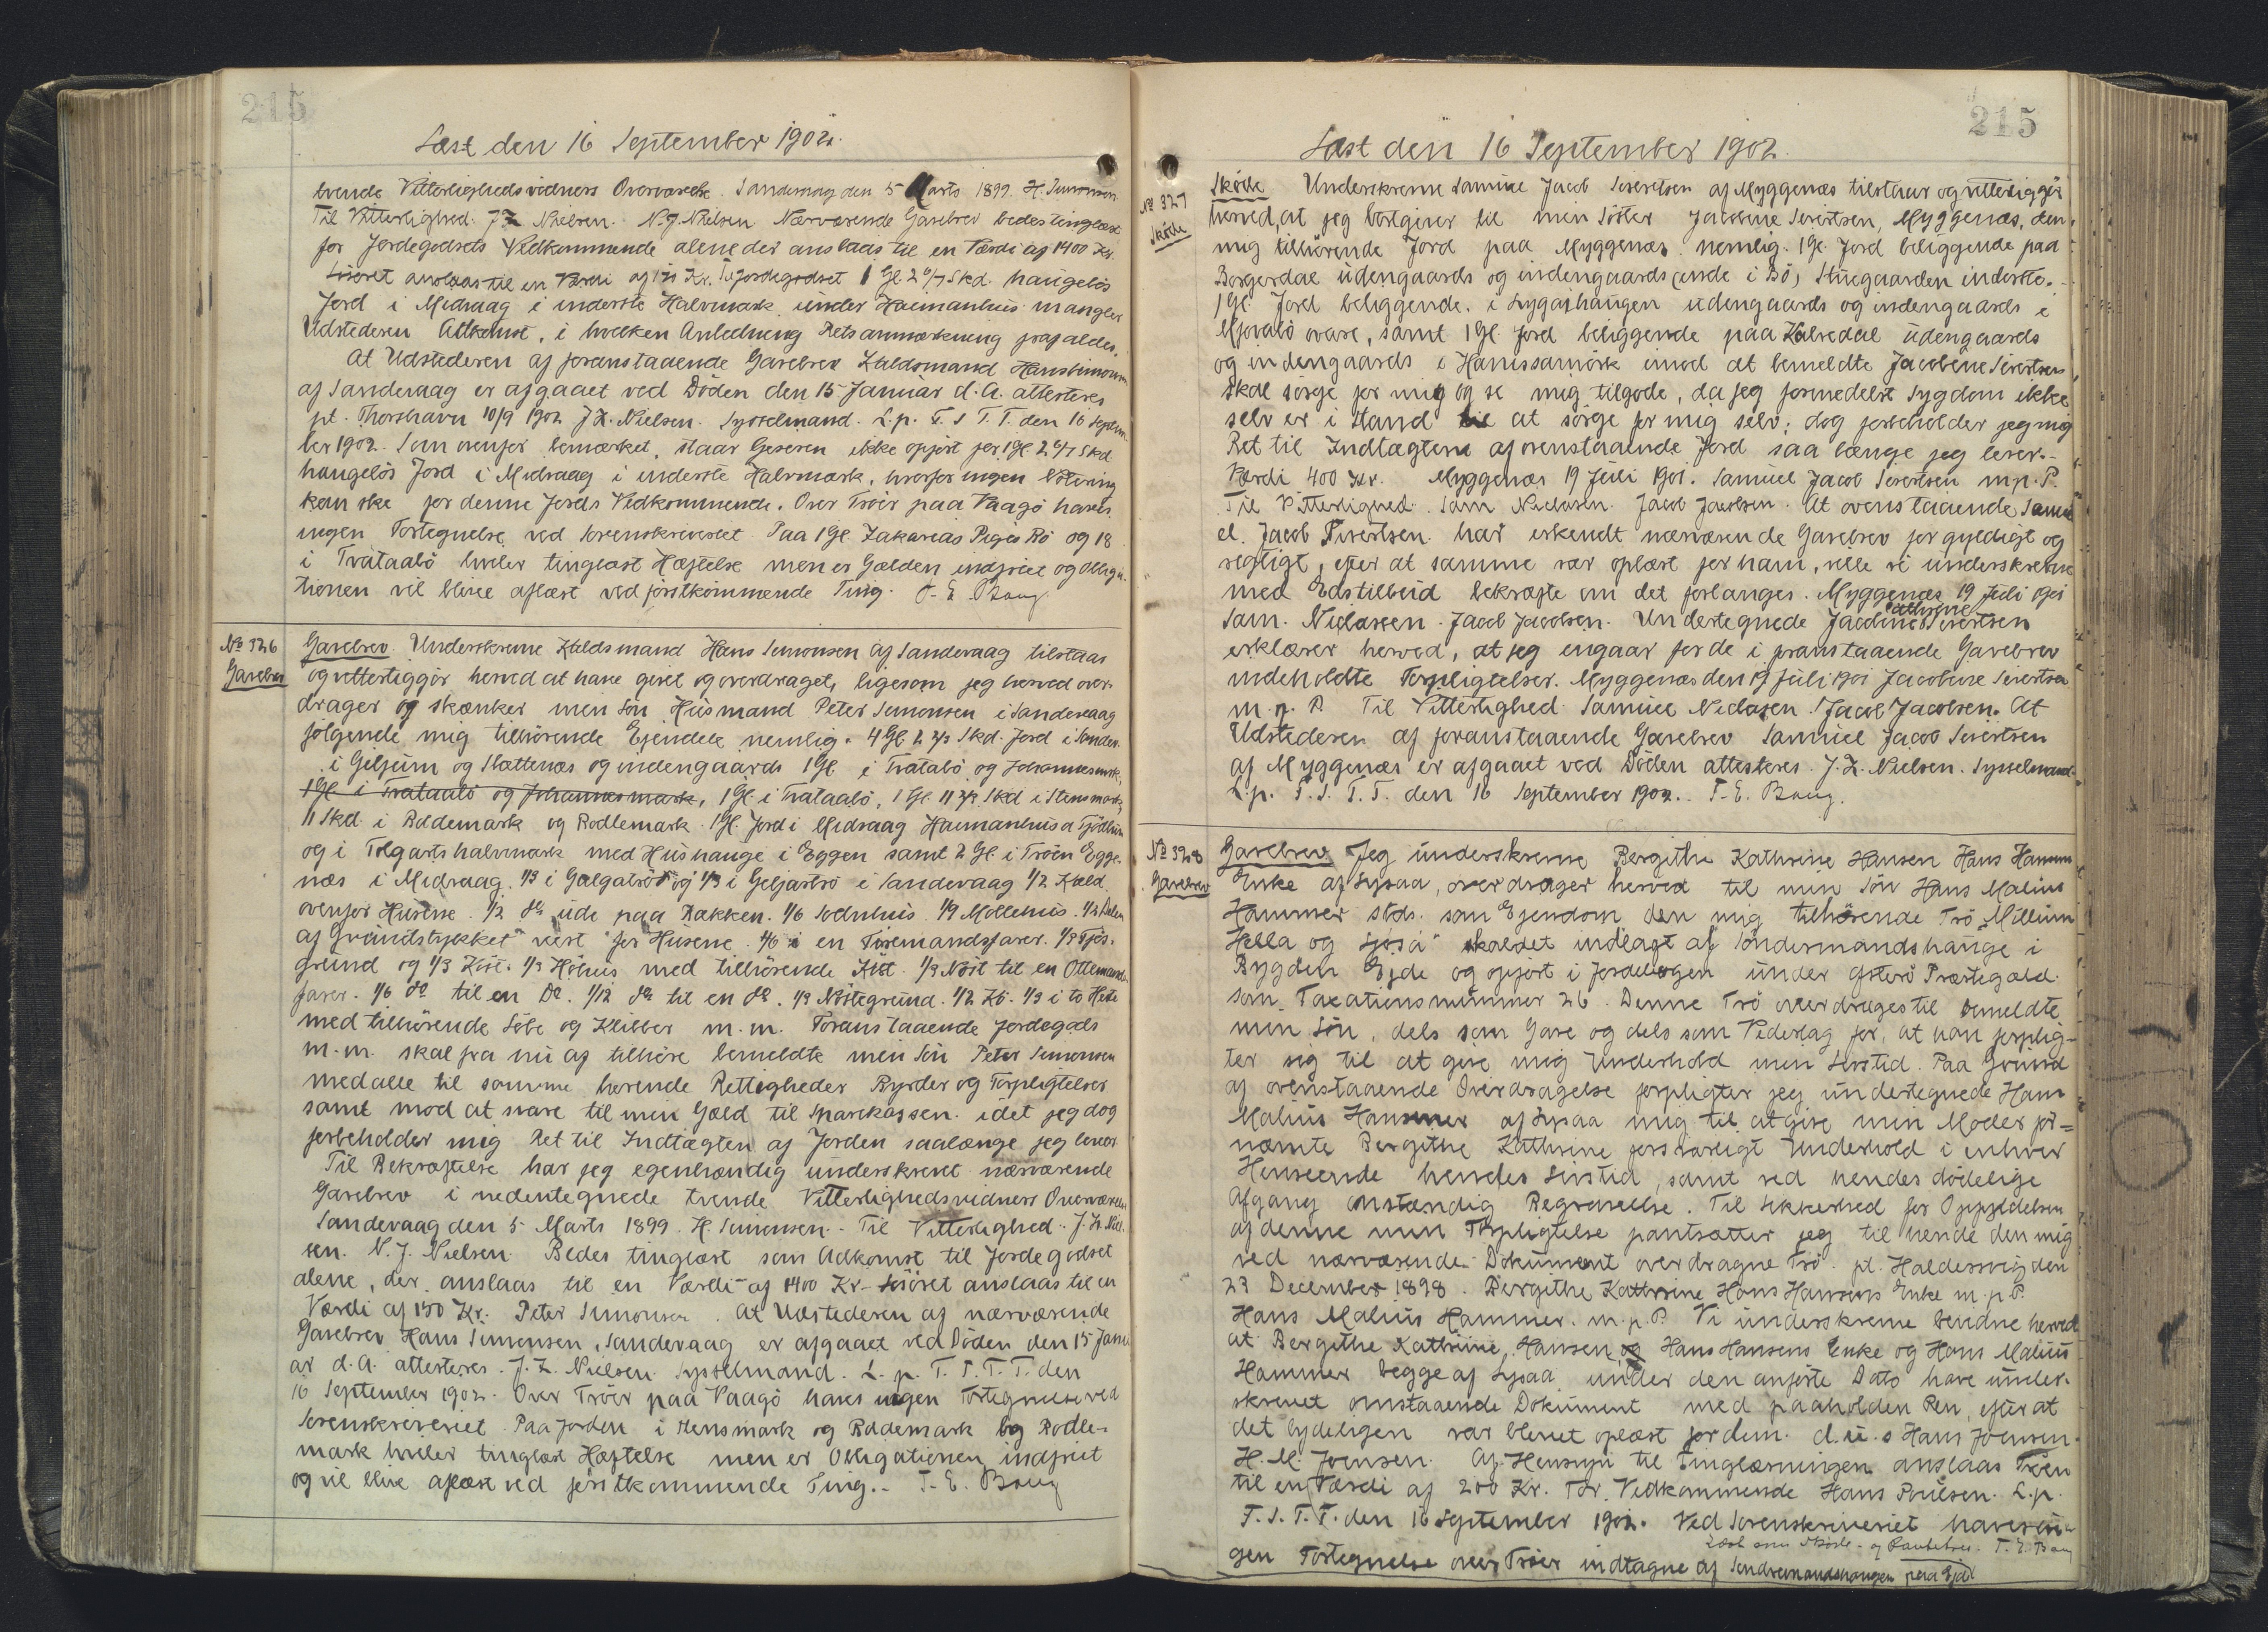 215
Læst den 16 September 1902.
tvende Vitterlighedsvidners Overværelse. Sandevaag den 5 Marts 1899. H. Simonsen
Til Vitterlighed. J. Z. Nielsen. N. J. Nielsen Nærværende Gavebrev bedes tinglæst
for Jordegodsets Vedkommende alene der anslaas til en Værdi af 1400 Kr.
Lösöret anslaas til en Værdi af 150 Kr. Jordegodset 1 Gl. 2 6/7 Skd. haugelös
Jord i Midraag i inderste Halvmark under Haimanhus mangler
Udstederen Adkomst, i hvilken Anledning Retsanmærkning paafalder.
At Udstederen af foranstaaende Gavebrev Kaldsmand Hans Simonsen
af Sandevaag er afgaaet ved Döden den 15 Januar d. A. attesteres
pt. Thorshavn 10/9 1902 J. Z. Nielsen. Sysselmand. L. p. F. S. T. T. den 16 Septem-
ber 1902. Som ovenfor bemærket, staar Giveren ikke opfört for 1 Gl 2 6/7 Skd
haugelös Jord i Midraag i inderste Halvmark, hvorfor ingen Notering
kan ske for denne Jords Vedkommende. Over Tröer paa Vaagö haves
ingen Fortegnelse ved Sorenskriveriet. Paa 1 Gl. Zakarias Piges Bö og 18
i Tvätaabö hviler tinglæst Hæftelse men er Gælden indfriet og Obliga-
tionen vil blive aflæst ved förstkommende Ting. T. E. Bang
No 326
Gavebrev
Gavebrev. Underskrevne Kaldsmand Hans Simonsen af Sandevaag tilstaar
og vitterliggör herved at have givet og overdraget, ligesom jeg herved over-
drager og skænker min Sön Husmand Peter Simonsen i Sandevaag
fölgende mig tilhörende Ejendele nemlig. 4 Gl. 2 2/3 Skd. Jord i Sander-
i Giljum og Slættenæs og indengaards 1 Gl. i Tvatabö og Johannesmrk.
1 Gl. i Tvataabö og Johannesmark, 1 Gl. i Tvataabö, 1 Gl. 11 2/3 Skd i Stensmark
11 Skd. i Boddemark og Rodlemark. 1 Gl. Jord i Midraag Haimanhus a Tjödhús
og i Tolgarts halvmark med Hushauge i Eggen samt 2 Gl. i Tröen Egge-
næs i Midraag. 1/3 i Galgatrö og 1/3 i Geljartrö i Sandevaag 1/2 Kæld
ovenfor Husene. 1/2 do ude paa Bakken. 1/6 Sodnhus. 1/9 Möllehus. 1/2 Delen
af Grundstykket "vest" for Husene. 1/6 i en Firemandsfarer. 1/3 Tjös-
grund og 1/3 Kost. 1/3 Höhus med tilhörende Kost. 1/3 Nöst til en Ottemands-
farer. 1/6 do til en Do. 1/12 do til en do. 1/3 Nöstegrund. 1/2 Kö. 1/3 i to Heste
med tilhörende Söbe og Klibber m. m. Foranstaaende Jordegods
m. m. skal fra nu af tilhöre bemeldte min Sön Peter Simonsen
med alle til samme hörende Rettigheder Byrder og Forpligtelser
samt mod at svare til min Gæld til Sparekassen. idet jeg dog
forbeholder mig Ret til Indtægten af Jorden saalænge jeg lever.
Til Bekræftelse har jeg egenhændig underskrevet nærværende
Gavebrev i nedentegnede tvende Vitterlighedsvidners Overværelse
Sandevaag den 5 Marts 1899. H. Simonsen. Til Vitterlighed. J. Z. Niel-
sen. N. J. Nielsen. Bedes tinglæst som Adkomst til Jordegodset
alene, der anslaas til en Værdi af 1400 Kr. Lösöret anslaas til en
Værdi af 150 Kr. Peter Simonsen. At Udstederen af nærværende
Gavebrev Hans Simonsen, Sandevaag er afgaaet ved Döden den 15 Janu-
ar d. A. attesteres. J. Z. Nielsen Sysselmand. L. p. F. S. T. T. den
16 September 1902. Over Tröer paa Vaagö haves ingen Fortegnelse ved
Sorenskriveriet. Paa Jorden i Stensmark og Boddemark og Rodle-
mark hviler tinglæst Hæftelse men er Obligationen indfriet
og vil blive aflæst ved förstkommende Ting.- T. E. Bang
215
Læst den 16 September 1902.
No 327
Sköde
Sköde Underskrevne Samuel Jacob Sivertsen af Myggenæs tilstaar og vitterliggör
herved, at jeg bortgiver til min Söster Jacobine Sivertsen, Myggenæs, den
mig tilhörende Jord paa Myggenæs nemlig. 1 Gl. Jord beliggende paa
Borgerdal udengaards og indengaards (ende i Bö) Stuegaarden inderste.-
1 Gl. Jord beliggende i Lygarhaugen udengaards og indengaards i
Mjovabö ovare, samt 1 Gl. Jord beliggende paa Kalvedal udengaards
og indengaards i Hanssamörk imod at bemeldte Jacobine Sivertsen
skal sörge for mig og se mig tilgode, da jeg formedelst Sygdom ikke
selv er i Stand til at sörge for mig selv; dog forbeholder jeg mig
Ret til Indtægten af ovenstaaende Jord saa længe jeg lever.-
Værdi 400 Kr. Myggenæs 19 Juli 1901. Samuel Jacob Sivertsen m. p. P.
Til Vitterlighed. Sam Niclasen. Jacob Jacobsen. At ovenstaaende Samu-
el Jacob Sivertsen har erkendt nærværende Gavebrev for gyldigt og
rigtigt, efter at samme var oplæst for ham, ville vi underskrevne
med Edstilbud bekræfte om det forlanges. Myggenæs 19 Juli 1901
Sam. Niclasen. Jacob Jacobsen. Undertegnede Jacobine Cathrine Sivertsen
erklærer herved, at jeg indgaar for de i foranstaaende Gavebrev
indeholdte Forpligtelser. Myggenæs den 19 Juli 1901 Jacobine Sivertsen
m. p. P. Til Vitterlighed Samuel Niclasen. Jacob Jacobsen. At
Udstederen af foranstaaende Gavebrev Samuel Jacob Sivertsen
af Myggenæs er afgaaet ved Döden attesteres. J. Z. Nielsen. Sysselmand.
L. p. F. S. T. T. den 16 September 1902.. T. E. Bang.
No 328
Gavebrev
Gavebrev Jeg underskrevne Bergithe Kathrine Hansen Hans Hansens
Enke af Lysaa, overdrager herved til min Sön Hans Malius
Hammer stds. som Ejendom den mig tilhörende Trö "Millum
Hella og Ljósá" skaldet indlagt af Söndermandshauge i
Bygden Ejde og opfört i Jordebogen under Österö Præstegæld
som Taxationsnummer 26. Denne Trö overdrages til bemeldte
min Sön, dels som Gave og dels som Vederlag for, at han forplig-
ter sig til at give mig Underhold min Livstid. Paa Grund
af ovenstaaende Overdragelse forpligter jeg undertegnede Hans
Malius Hammer af Lysaa mig til at give min Moder for-
nævnte Bergithe Kathrine forsvarligt Underhold i enhver
Henseende hendes Livstid, samt ved hendes dödelige
Afgang anstændig Begravelse. Til Sikkerhed for Opfyldelsen
af denne min Forpligtelse pantsætter jeg til hende den mig
ved nærværende Dokument overdragne Trö. pt. Haldersvig den
23 December 1898. Bergithe Kathrine Hans Hansens Enke m. p. P.
Hans Malius Hammer. m. p. P. Vi underskrevne bevidne herved
at Bergithe Kathrine, Hansen og Hans Hansens Enke og Hans Malius
Hammer begge af Lysaa under den anförte Dato have under-
skrevet omstaaende Dokument med paaholden Pen, efterat
det tydeligen var blevet oplæst for dem. d. u. s Hans Joensen.
H. M. Joensen. Af Hensyn til Tinglæsningen anslaas Tröen
til en Værdi af 200 Kr. Thr. Vedkommende Hans Poulsen. L. p.
F. S. T. T. den 16 September 1902. Ved Sorenskriveriet haves in-
Læst som Sköde- og Pantebrev. T. E. Bang
gen Fortegnelse over Tröer indtagne af Söndremandshaugen paa Ejde